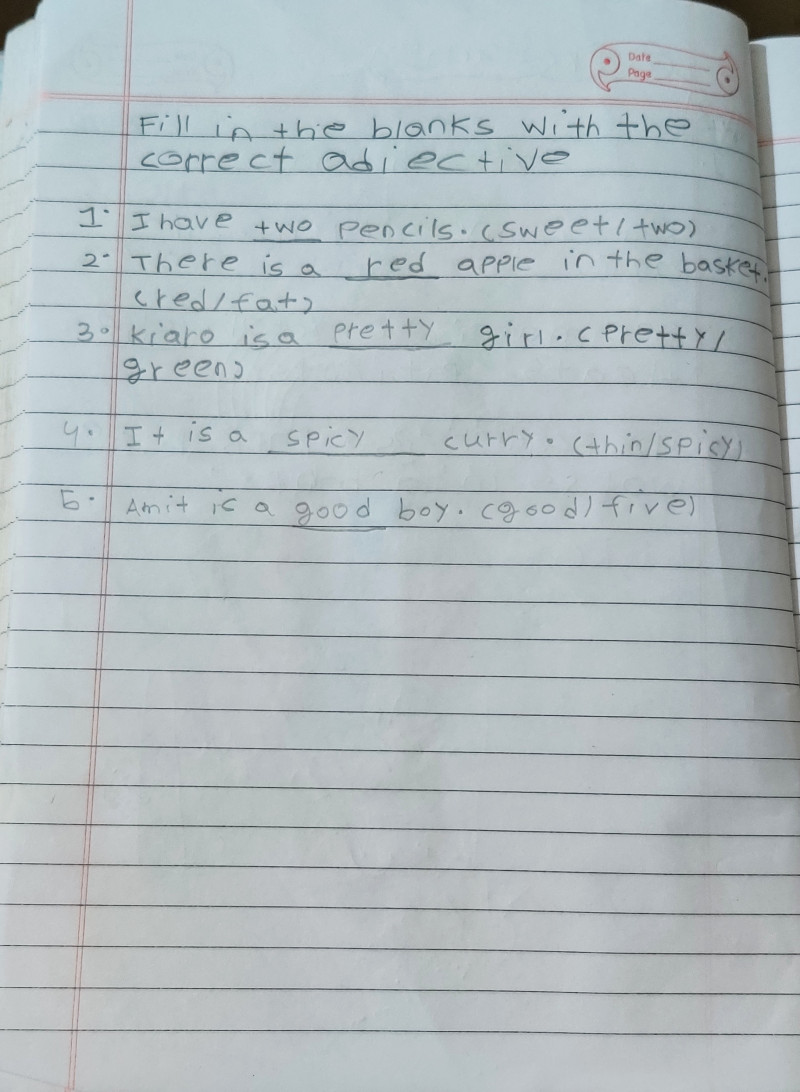 Date
Page
Fill in the blanks with the
correct adjective
1. I have two pencils. (sweet/two)
2. There is a red apple in the basket.
(red/fat)
3. kiaro is a pretty girl. (pretty/
green)
4. It is a spicy curry. (thin/spicy)
5. Amit is a good boy. (good/five)